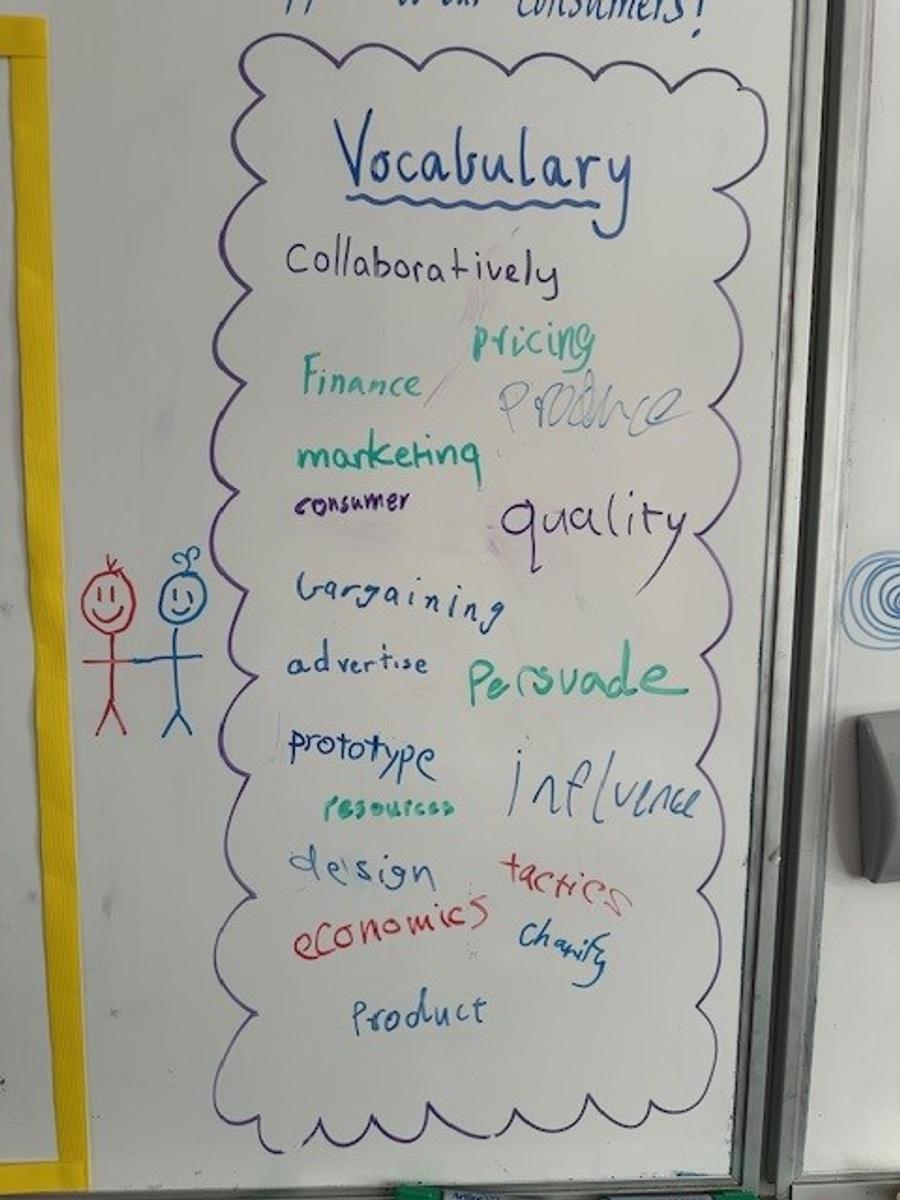 consumers!
Vocabulary
Collaboratively
pricing
Finance
Produce
marketing
consumer
quality
bargaining
advertise
Persuade
prototype
influence
resources
design
tactics
economics
charity
Product